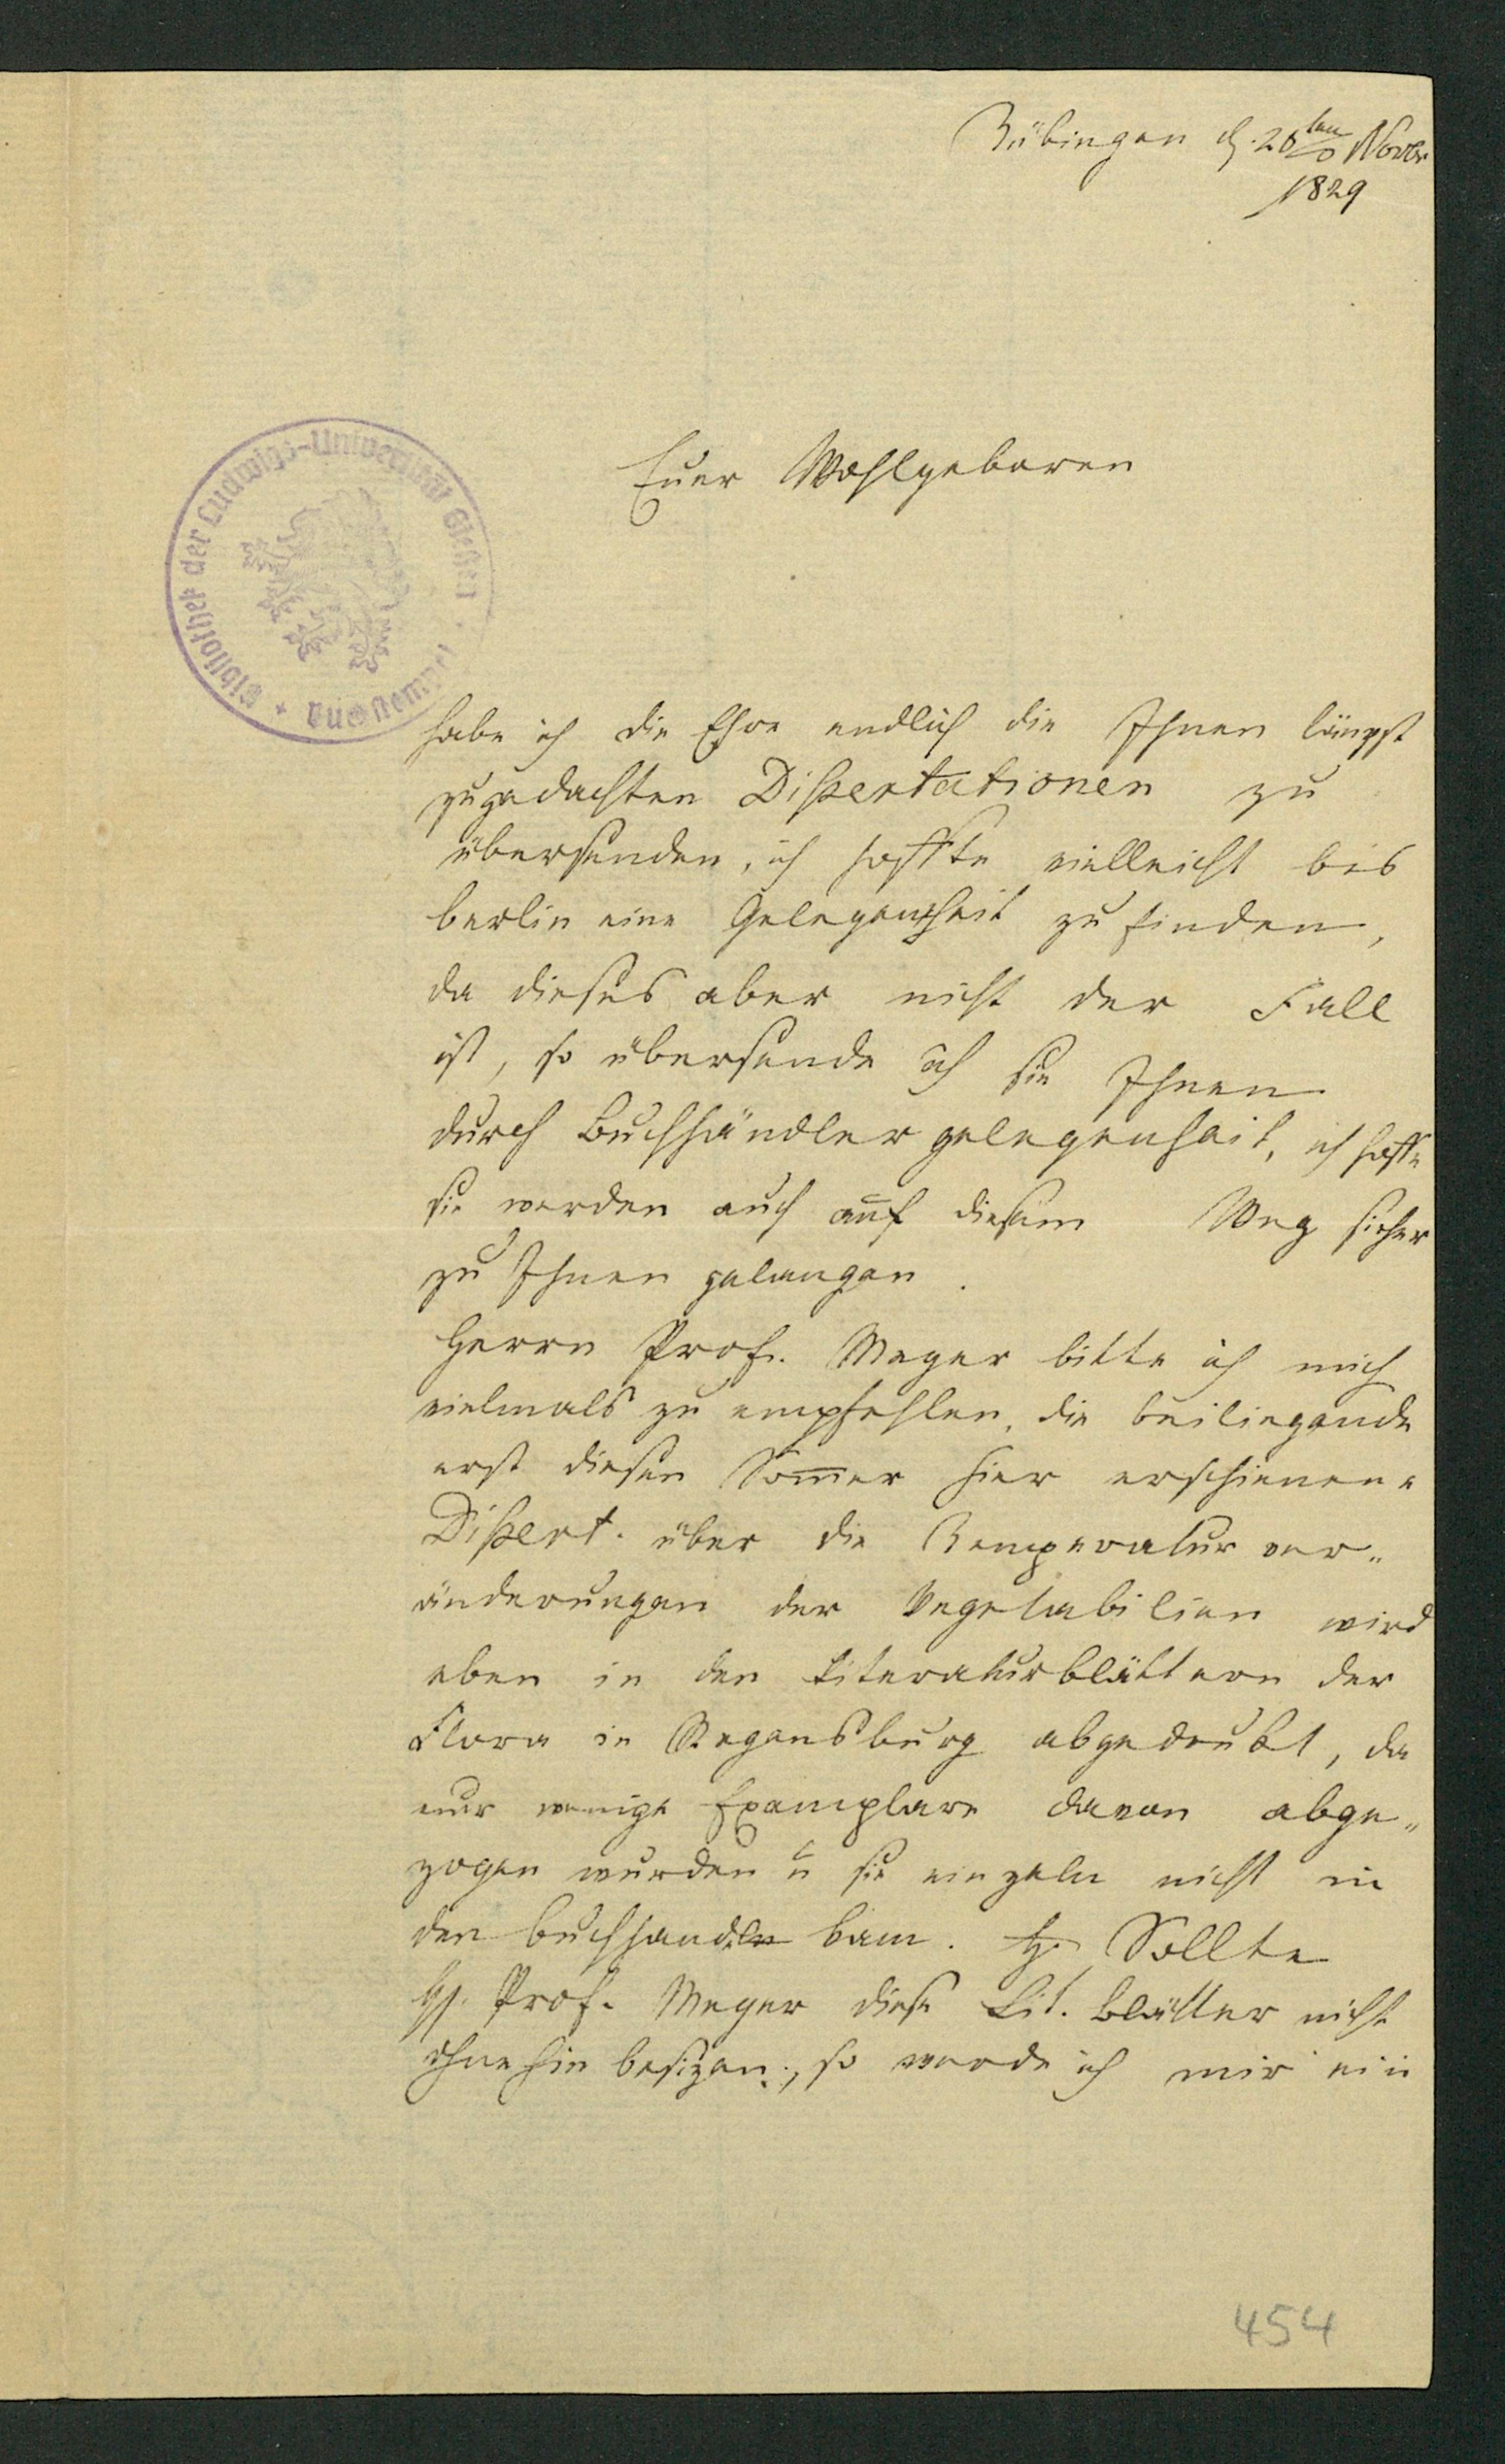 Tübingen d. 26ten Novbr
1829
Euer Wohlgeboren
Bibliothek der Ludwigs-Universität Gießen
habe ich die Ehre endlich die Ihnen längst
zugedachten Dißertationen zu
übersenden, ich hoffte vielleicht bis
Berlin eine Gelegenheit zu finden,
da dieses aber nicht der Fall
ist, so übersende ich sie Ihnen
durch Buchhändlergelegenheit, ich hoffe
sie werden auch auf diesem Weg sicher
zu Ihnen gelangen.
Herrn Prof. Meyer bitte ich mich
vielmals zu empfehlen, die beiliegende
erst diesen Som̅er hier erschienene
Dißert. über die Temperaturver„
änderungen der Vegetabilien wird
eben in den Literaturblättern der
Flora in Regensburg abgedrukt, da
nur wenige Exemplare davon abge„
zogen wurden u sie einzeln nicht in
den Buchhandel kam. Sollte
H. Prof. Meyer diese Lit. Blätter nicht
ohnehin besizen, so werde ich mir ein
454